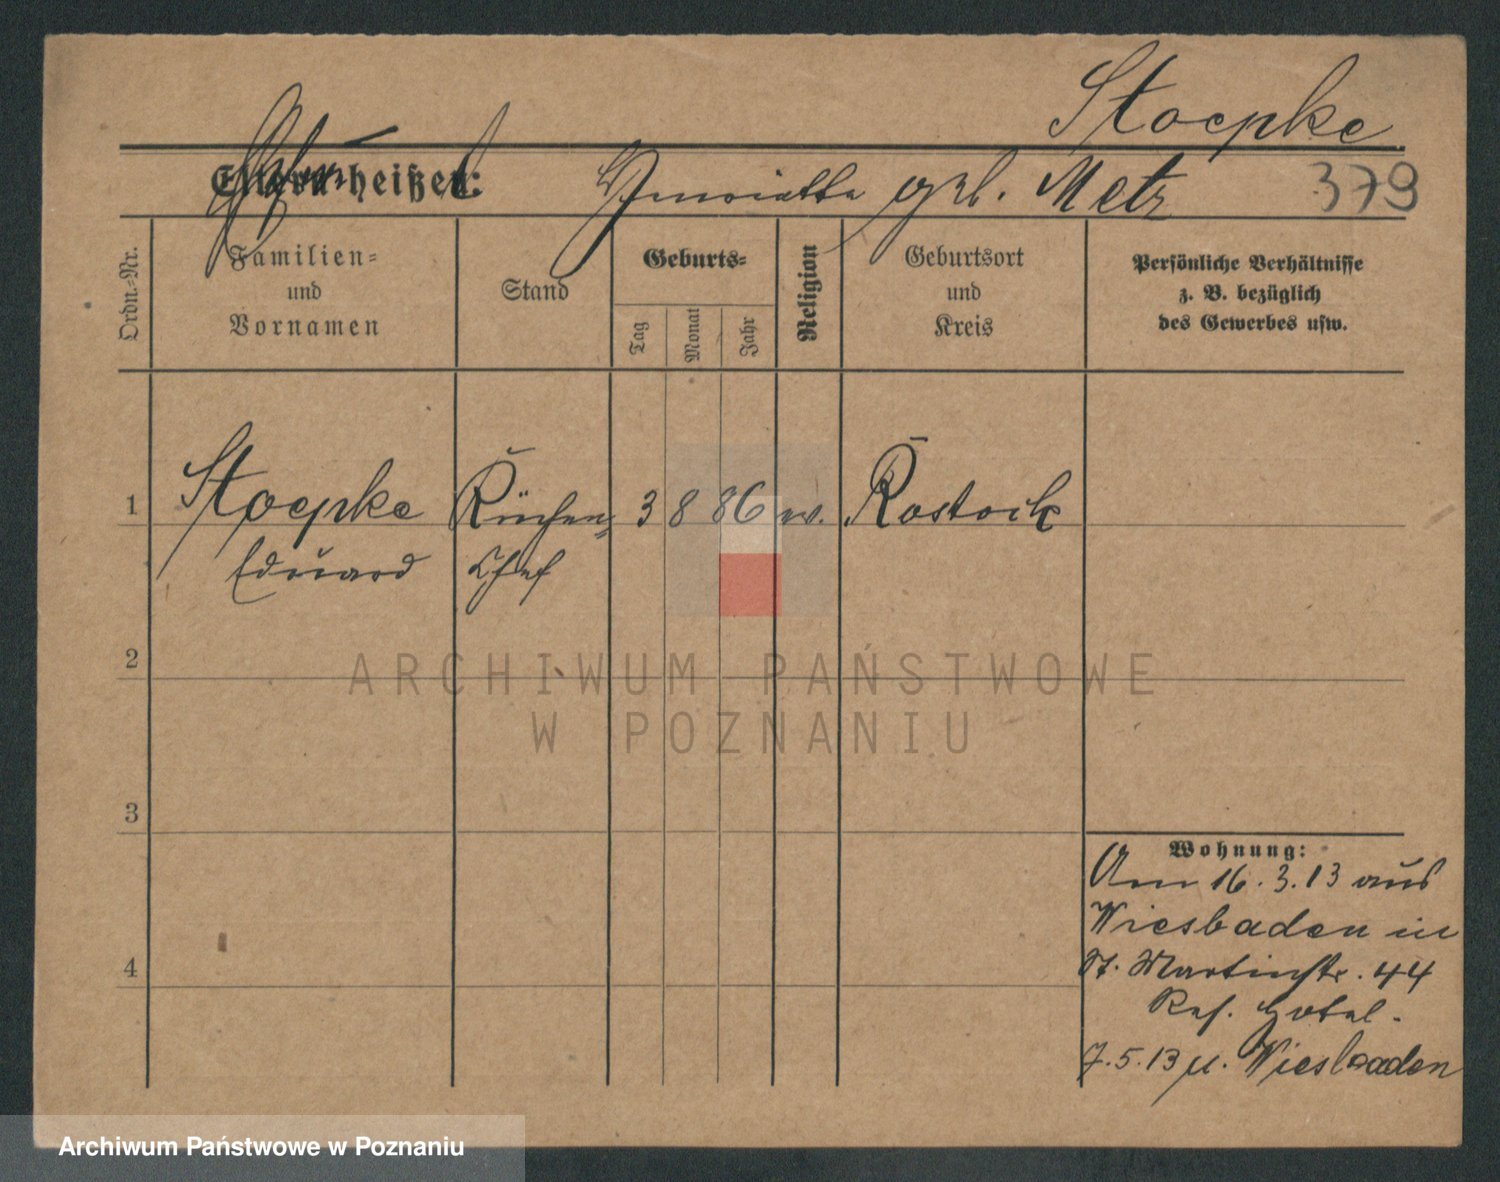 Stoepke
Eltern heißen:
Henriette geb. Metz
379
Ordn.-Nr.
Familien-
und
Vornamen
Stand
Geburts-
Tag
Monat
Jahr
Religion
Geburtsort
und
Kreis
Persönliche Verhältnisse
z. B. bezüglich
des Gewerbes usw.
1 Stoepke Küchen= 3 8 86 ev. Rostock
Eduard Chef
2
ARCHIWUM PAŃSTWOWE
W POZNANIU
3
Wohnung:
Am 16.3.13 aus
Wiesbaden in
St. Martinstr. 44
Ref. Hotel.
7.5.13 n. Wiesbaden
4
Archiwum Państwowe w Poznaniu